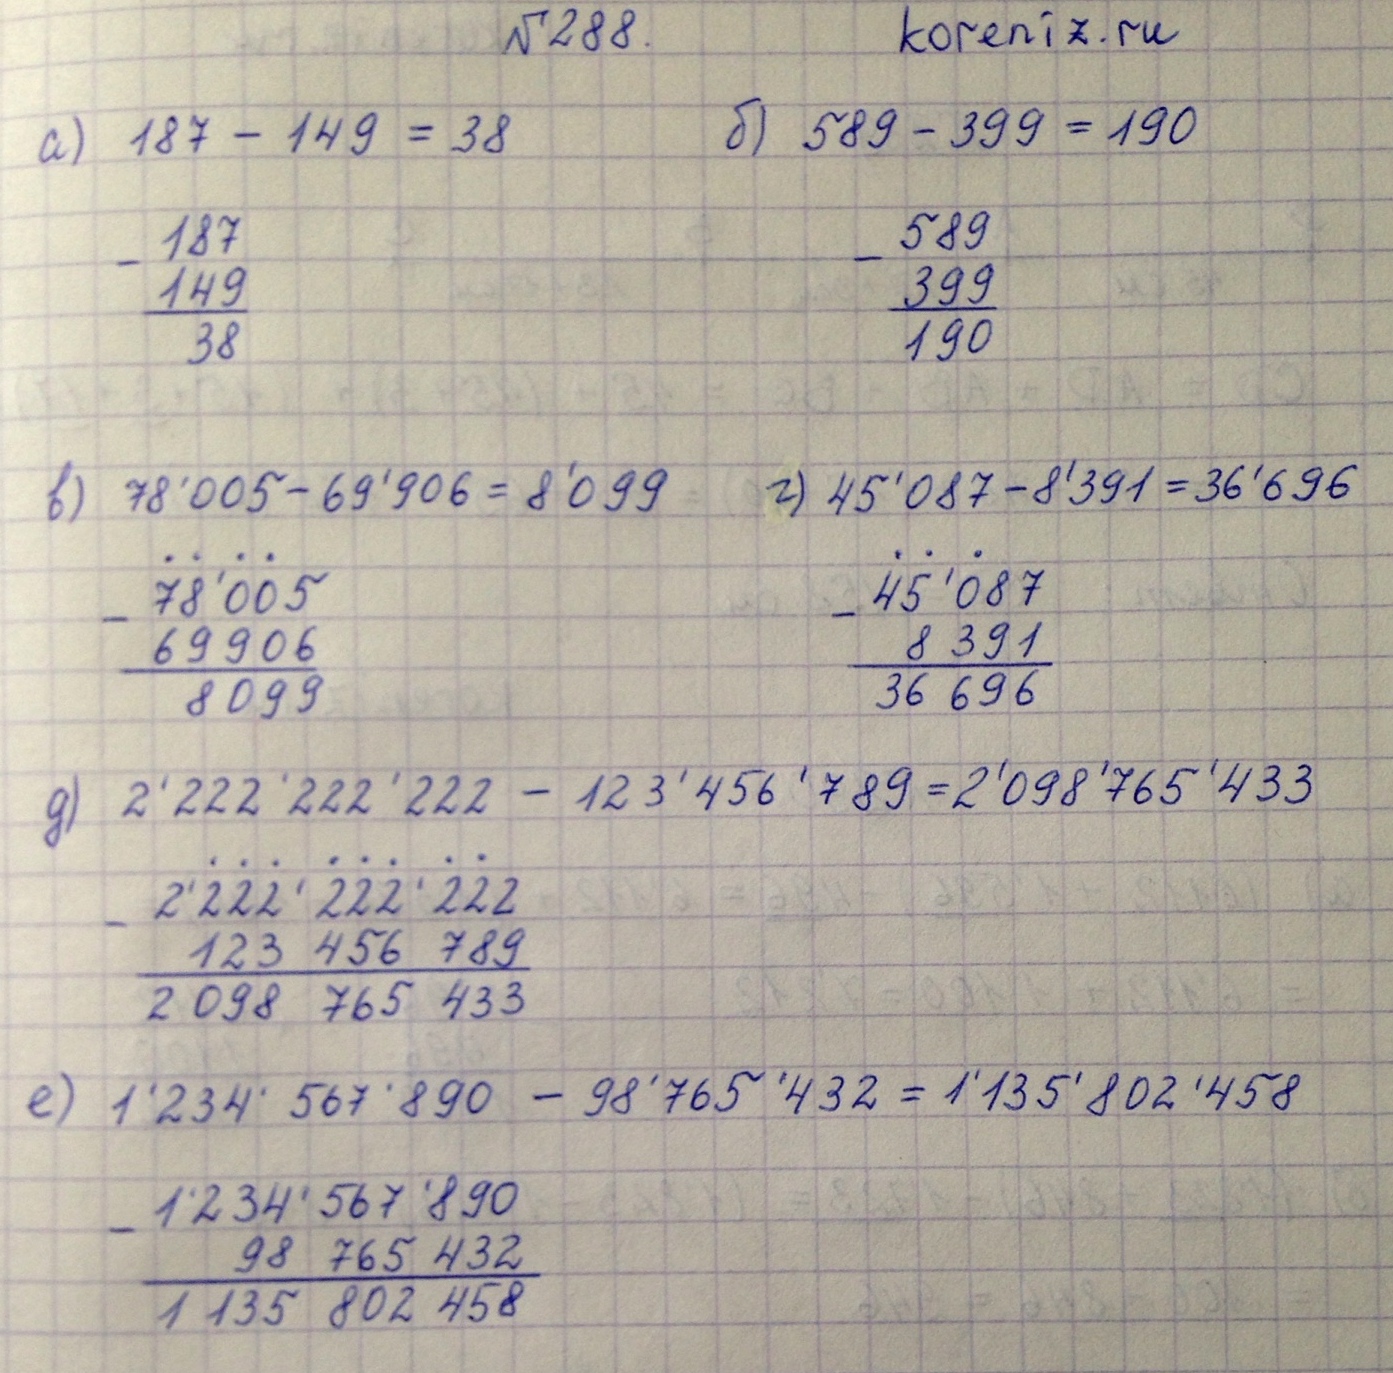 №288. koreniz.ru
а) 187 - 149 = 38 б) 589 - 399 = 190
- 187
149
38
- 589
399
190
в) 78'005 - 69'906 = 8'099 г) 45'087 - 8'391 = 36'696
- 78'005
69906
8099
- 45'087
8 391
36 696
д) 2'222'222'222 - 123'456'789 = 2'098'765'433
- 2'222'222'222
123 456 789
2 098 765 433
е) 1'234'567'890 - 98'765'432 = 1'135'802'458
- 1'234'567'890
98 765 432
1 135 802 458